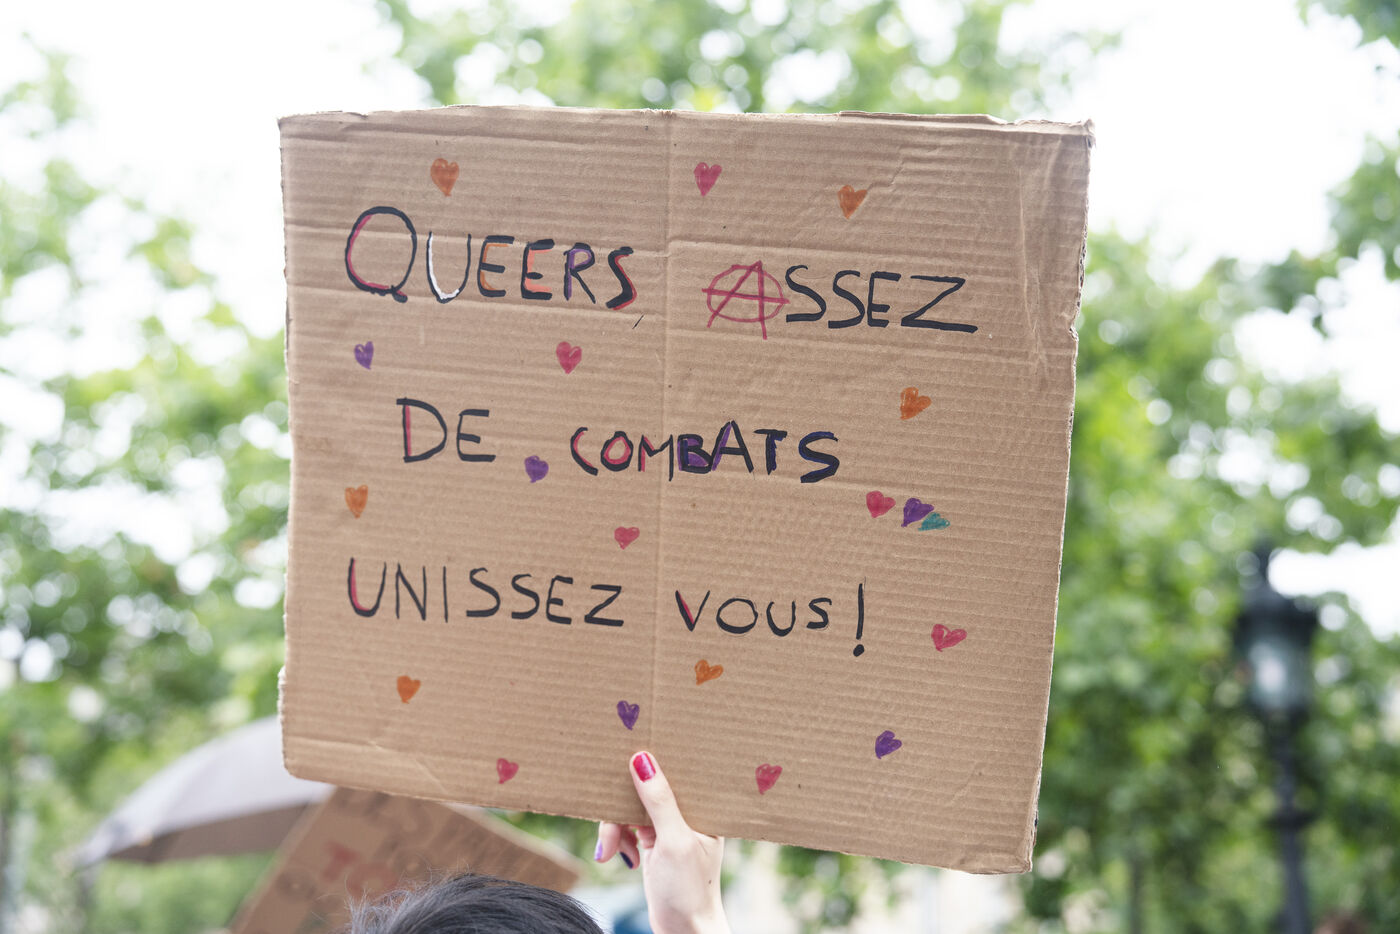 QUEERS, ASSEZ
DE COMBATS
UNISSEZ VOUS!